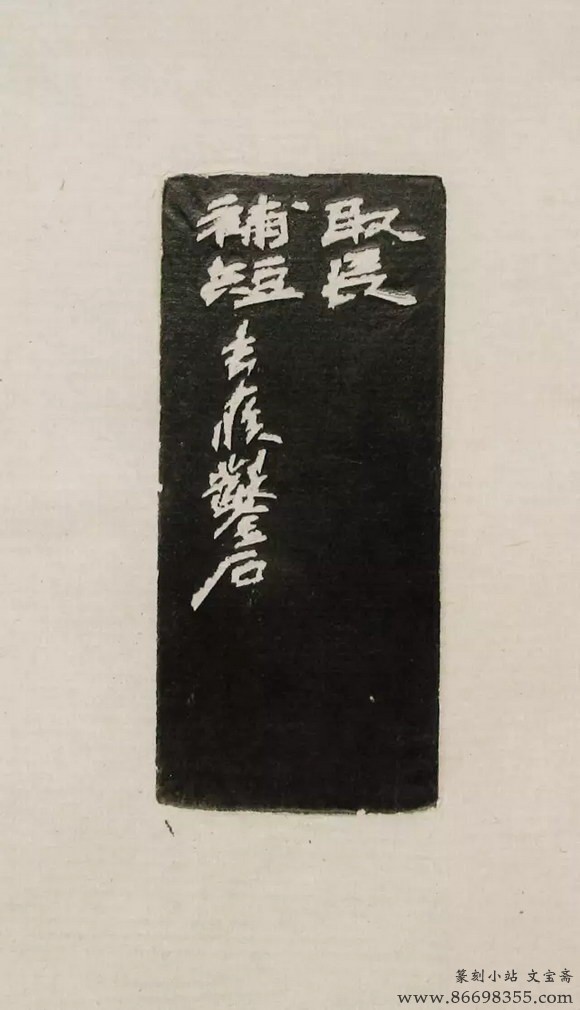 取長
補短去疾鑿石
篆刻小站 文宝斋
www.86698355.com